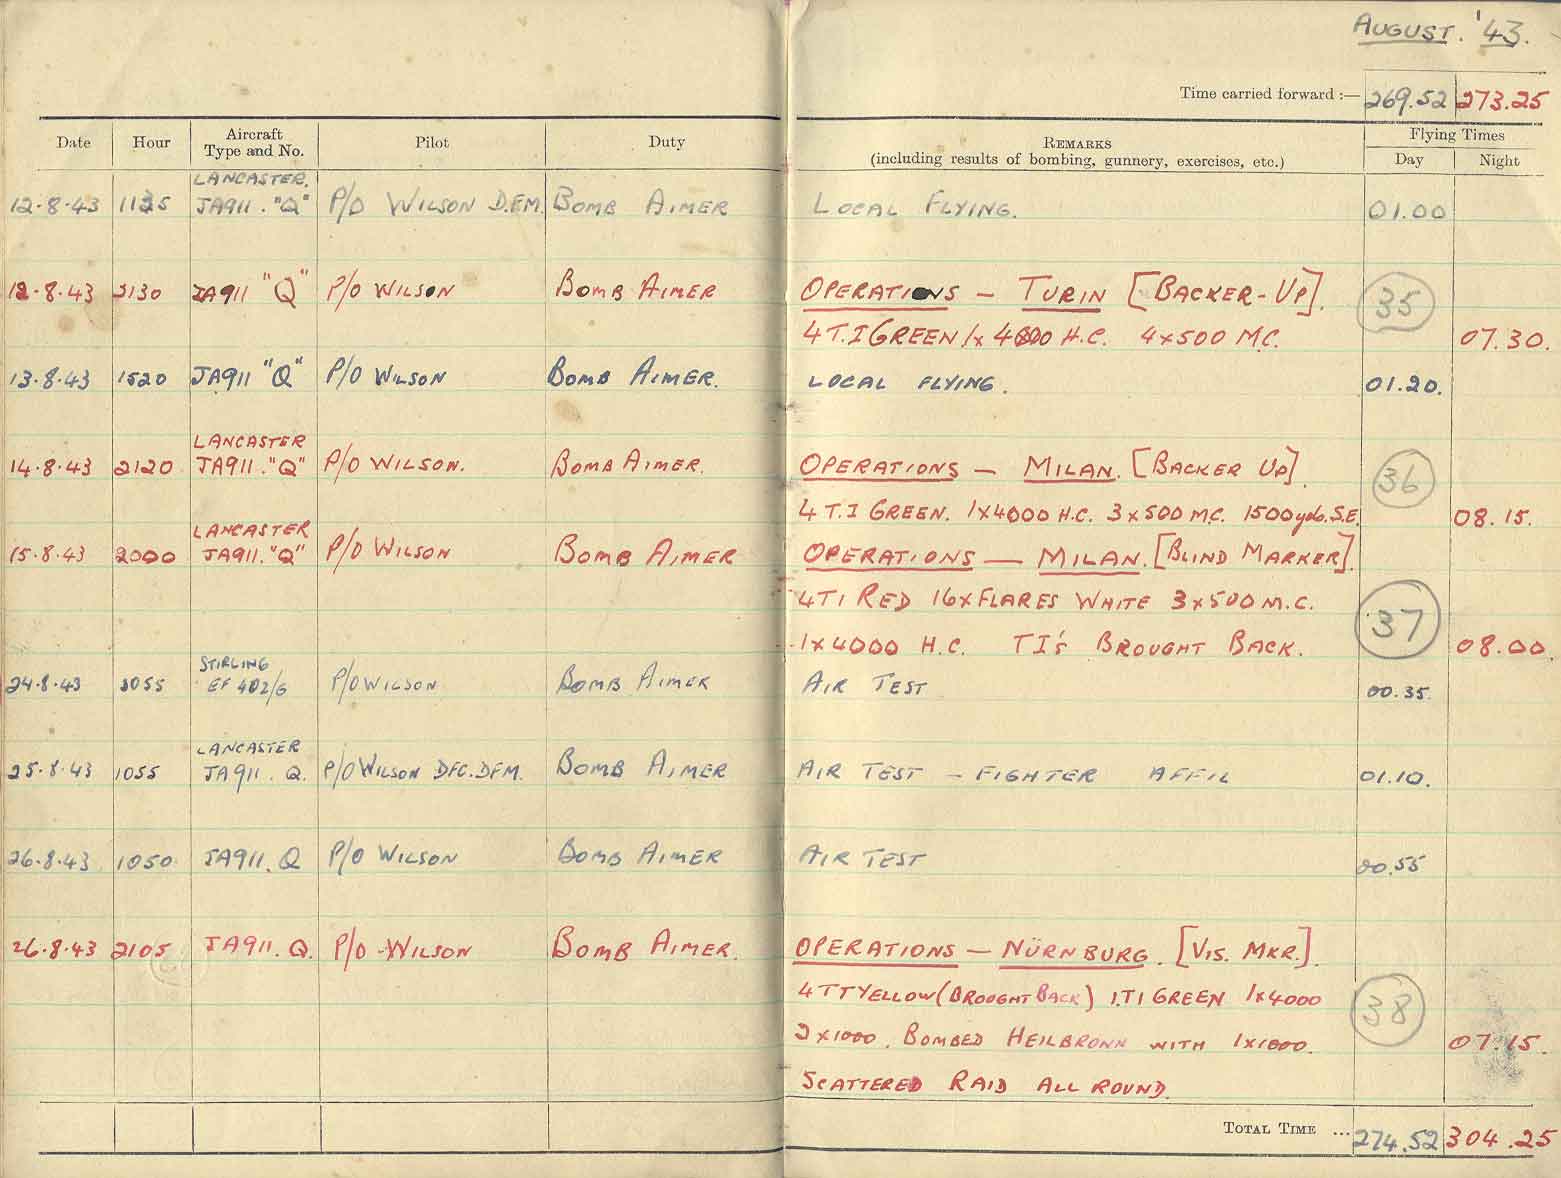 AUGUST. '43.
Time carried forward :— 269.52 273.25
Date Hour Aircraft Type and No. Pilot Duty REMARKS (including results of bombing, gunnery, exercises, etc.) Flying Times Day Night
LANCASTER.
12.8.43 1125 JA911. "Q" P/O WILSON D.F.M. BOMB AIMER LOCAL FLYING. 01.00
12.8.43 2130 JA911 "Q" P/O WILSON BOMB AIMER OPERATIONS — TURIN [BACKER-UP]. 35
4 T.I GREEN 1x 4000 H.C. 4x500 M.C. 07.30.
13.8.43 1520 JA911 "Q" P/O WILSON BOMB AIMER. LOCAL FLYING. 01.20.
LANCASTER
14.8.43 2120 JA911. "Q" P/O WILSON. BOMB AIMER. OPERATIONS — MILAN. [BACKER UP]. 36
4 T.I GREEN. 1x4000 H.C. 3x500 M.C. 1500yds. S.E. 08.15.
LANCASTER
15.8.43 2000 JA911. "Q" P/O WILSON BOMB AIMER OPERATIONS — MILAN. [BLIND MARKER].
4 TI RED 16x FLARES WHITE 3x500 M.C. 37
1x4000 H.C. TI's BROUGHT BACK. 08.00.
STIRLING
24.8.43 1055 EF 402/G P/O WILSON BOMB AIMER AIR TEST 00.35.
LANCASTER
25.8.43 1055 JA911. Q. P/O WILSON DFC. DFM. BOMB AIMER AIR TEST — FIGHTER AFFIL 01.10.
26.8.43 1050 JA911. Q P/O WILSON BOMB AIMER AIR TEST 00.55
26.8.43 2105 JA911. Q. P/O WILSON BOMB AIMER. OPERATIONS — NÜRNBURG. [VIS. MKR.].
4 TI YELLOW (BROUGHT BACK) 1.TI GREEN 1x4000 38
2x1000. BOMBED HEILBRONN WITH 1x1000. 07.15.
SCATTERED RAID ALL ROUND.
TOTAL TIME ... 274.52 304.25